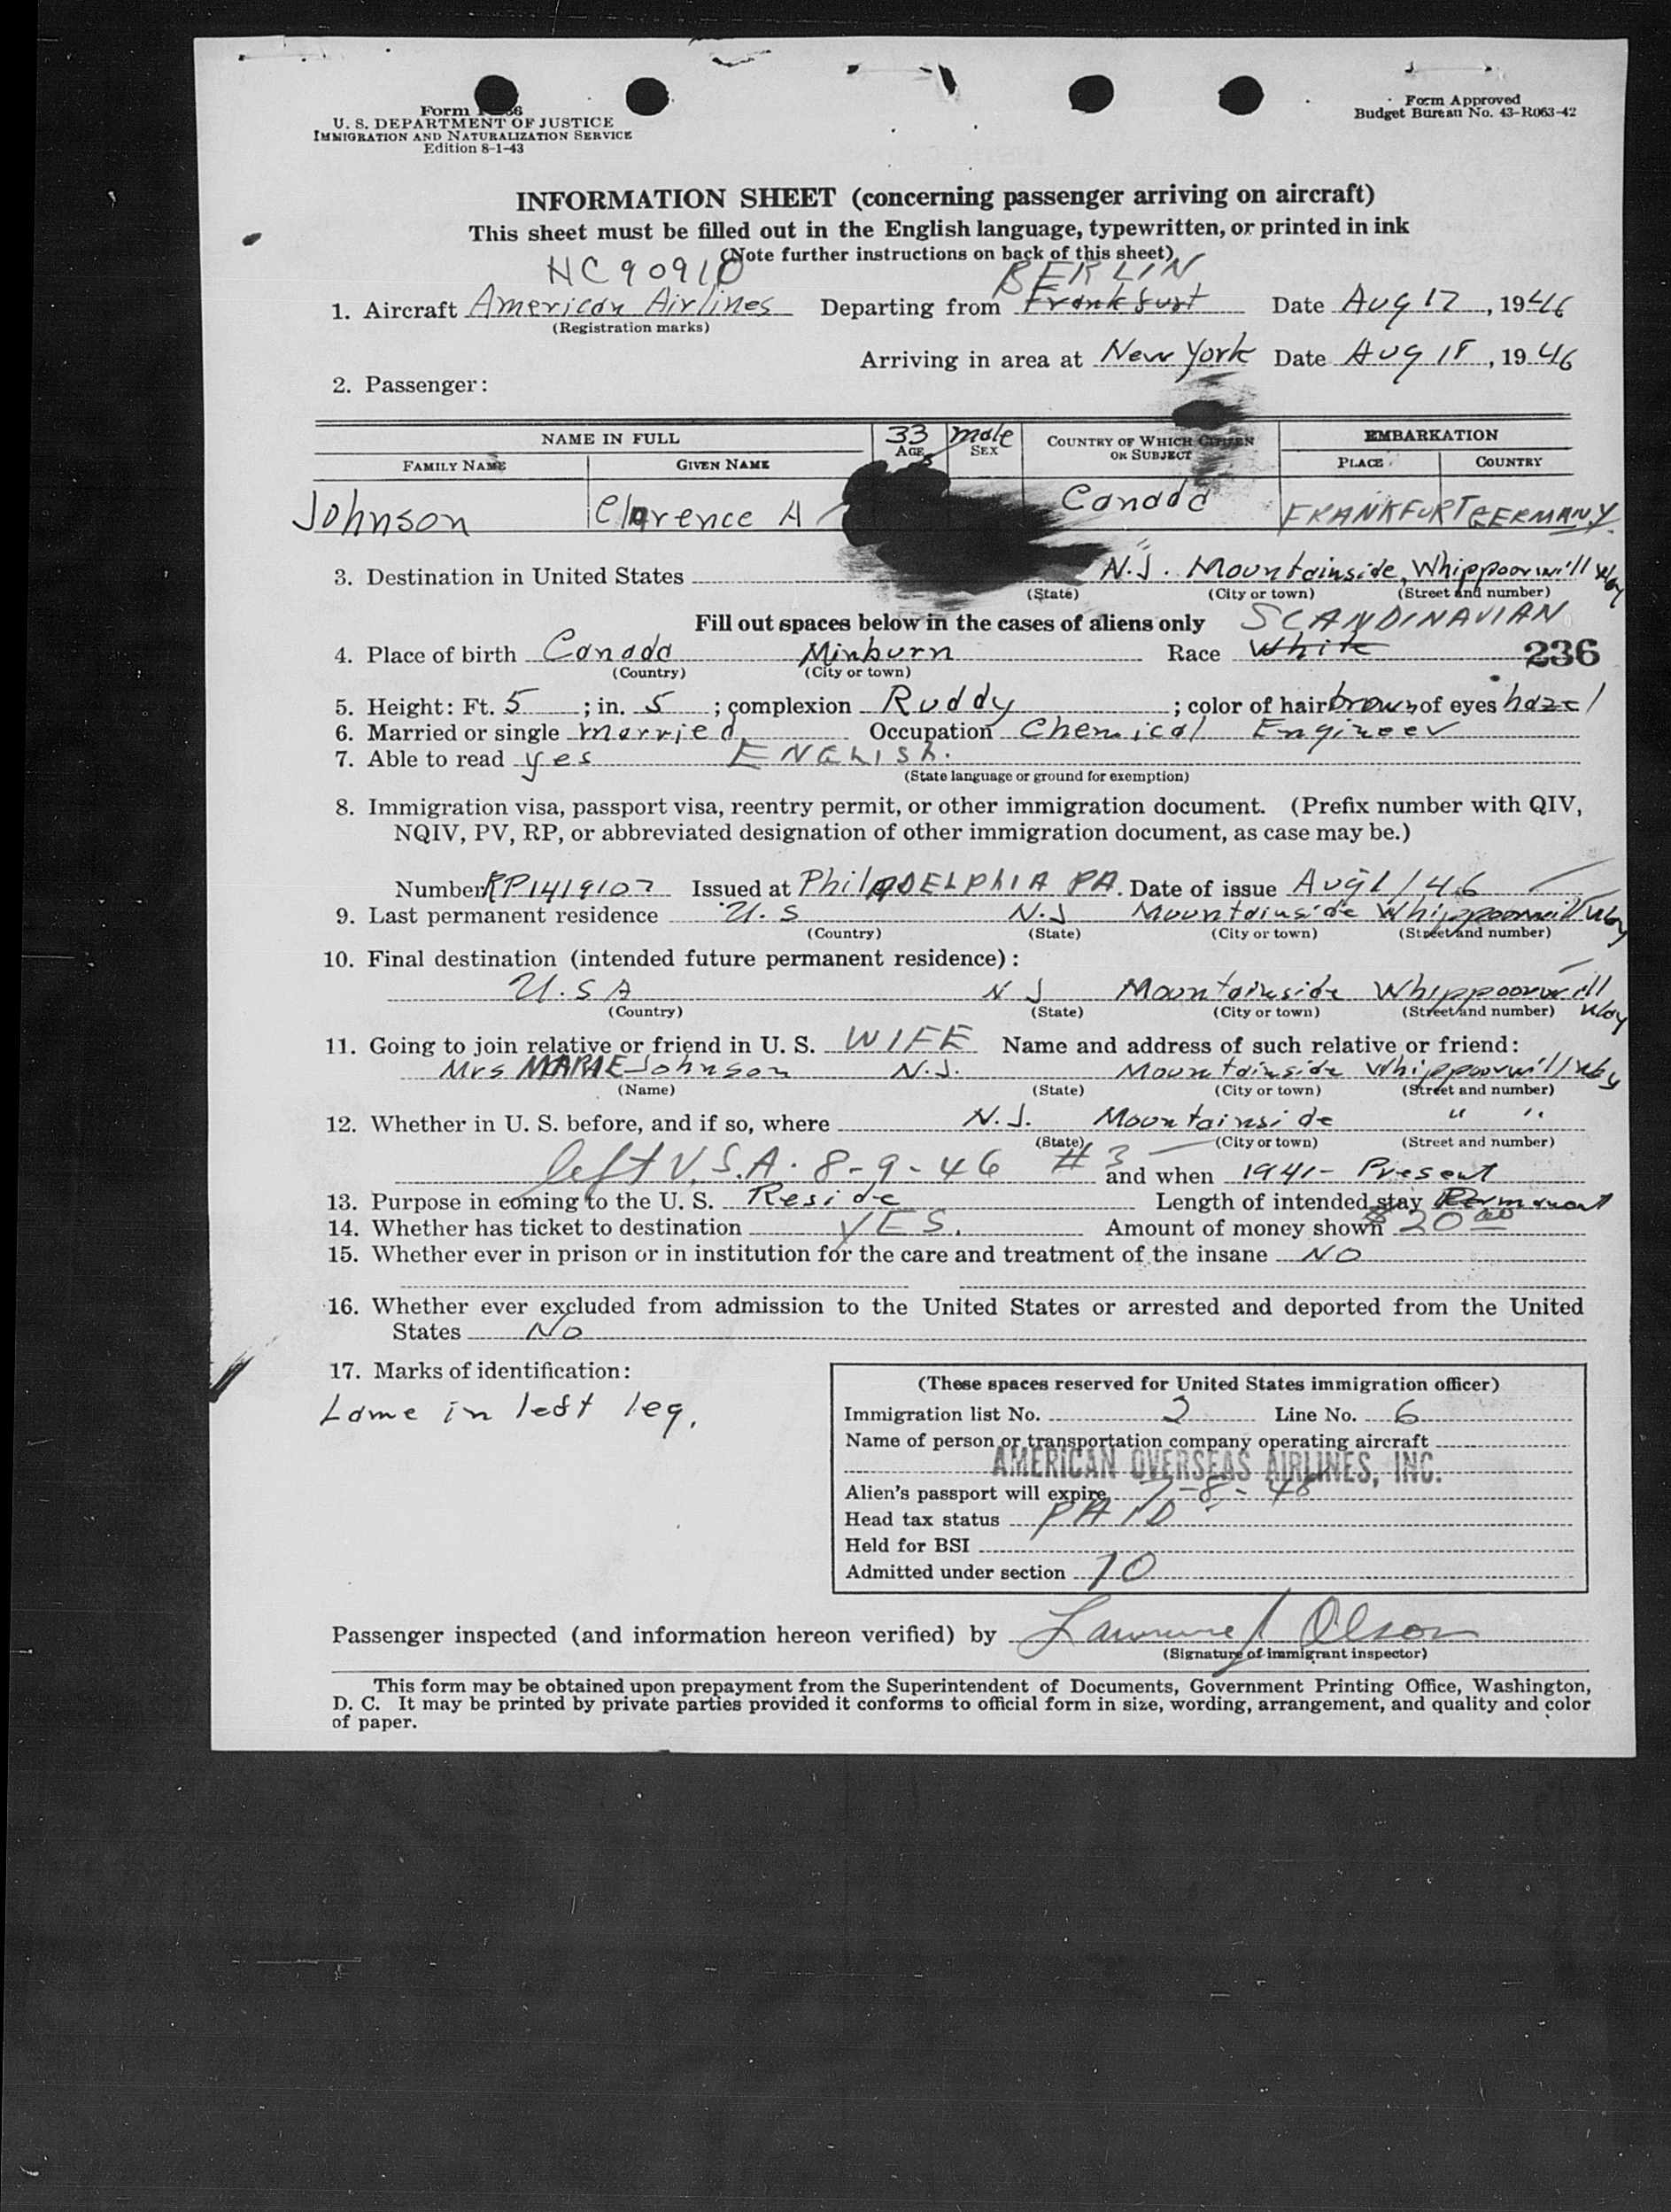 Form I-466
U. S. DEPARTMENT OF JUSTICE
IMMIGRATION AND NATURALIZATION SERVICE
Edition 8-1-43
Form Approved
Budget Bureau No. 43-R063-42
INFORMATION SHEET (concerning passenger arriving on aircraft)
This sheet must be filled out in the English language, typewritten, or printed in ink
(Note further instructions on back of this sheet)
NC90910 BERLIN
1. Aircraft American Airlines Departing from Frankfurt Date Aug 17, 1946
(Registration marks)
Arriving in area at New York Date Aug 18, 1946
2. Passenger:
NAME IN FULL 33 AGE male SEX COUNTRY OF WHICH CITIZEN OR SUBJECT EMBARKATION
FAMILY NAME GIVEN NAME PLACE COUNTRY
Johnson Clarence A Canada FRANKFURT GERMANY
3. Destination in United States N.J. Mountainside, Whippoorwill Way
(State) (City or town) (Street and number)
Fill out spaces below in the cases of aliens only SCANDINAVIAN
4. Place of birth Canada Minburn Race White 236
(Country) (City or town)
5. Height: Ft. 5; in. 5; complexion Ruddy; color of hair brown of eyes hazel
6. Married or single married Occupation Chemical Engineer
7. Able to read yes ENGLISH.
(State language or ground for exemption)
8. Immigration visa, passport visa, reentry permit, or other immigration document. (Prefix number with QIV,
NQIV, PV, RP, or abbreviated designation of other immigration document, as case may be.)
Number RP1419107 Issued at PhilADELPhIA PA. Date of issue Aug 1/46
9. Last permanent residence U.S N.J Mountainside Whippoorwill Way
(Country) (State) (City or town) (Street and number)
10. Final destination (intended future permanent residence):
U.S A N J Mountainside Whippoorwill Way
(Country) (State) (City or town) (Street and number)
11. Going to join relative or friend in U. S. WIFE Name and address of such relative or friend:
Mrs MARIE Johnson N.J. Mountainside Whippoorwill Way
(Name) (State) (City or town) (Street and number)
12. Whether in U. S. before, and if so, where N.J. Mountainside " "
(State) (City or town) (Street and number)
left U.S.A. 8-9-46 #3 and when 1941- Present
13. Purpose in coming to the U. S. Reside Length of intended stay Permanent
14. Whether has ticket to destination YES. Amount of money shown $20 00
15. Whether ever in prison or in institution for the care and treatment of the insane NO
16. Whether ever excluded from admission to the United States or arrested and deported from the United
States No
17. Marks of identification:
Lame in left leg.
(These spaces reserved for United States immigration officer)
Immigration list No. 2 Line No. 6
Name of person or transportation company operating aircraft
AMERICAN OVERSEAS AIRLINES, INC.
Alien's passport will expire 7-8-48
Head tax status PAID
Held for BSI
Admitted under section 10
Passenger inspected (and information hereon verified) by Lawrence J Olson
(Signature of immigrant inspector)
This form may be obtained upon prepayment from the Superintendent of Documents, Government Printing Office, Washington,
D. C. It may be printed by private parties provided it conforms to official form in size, wording, arrangement, and quality and color
of paper.